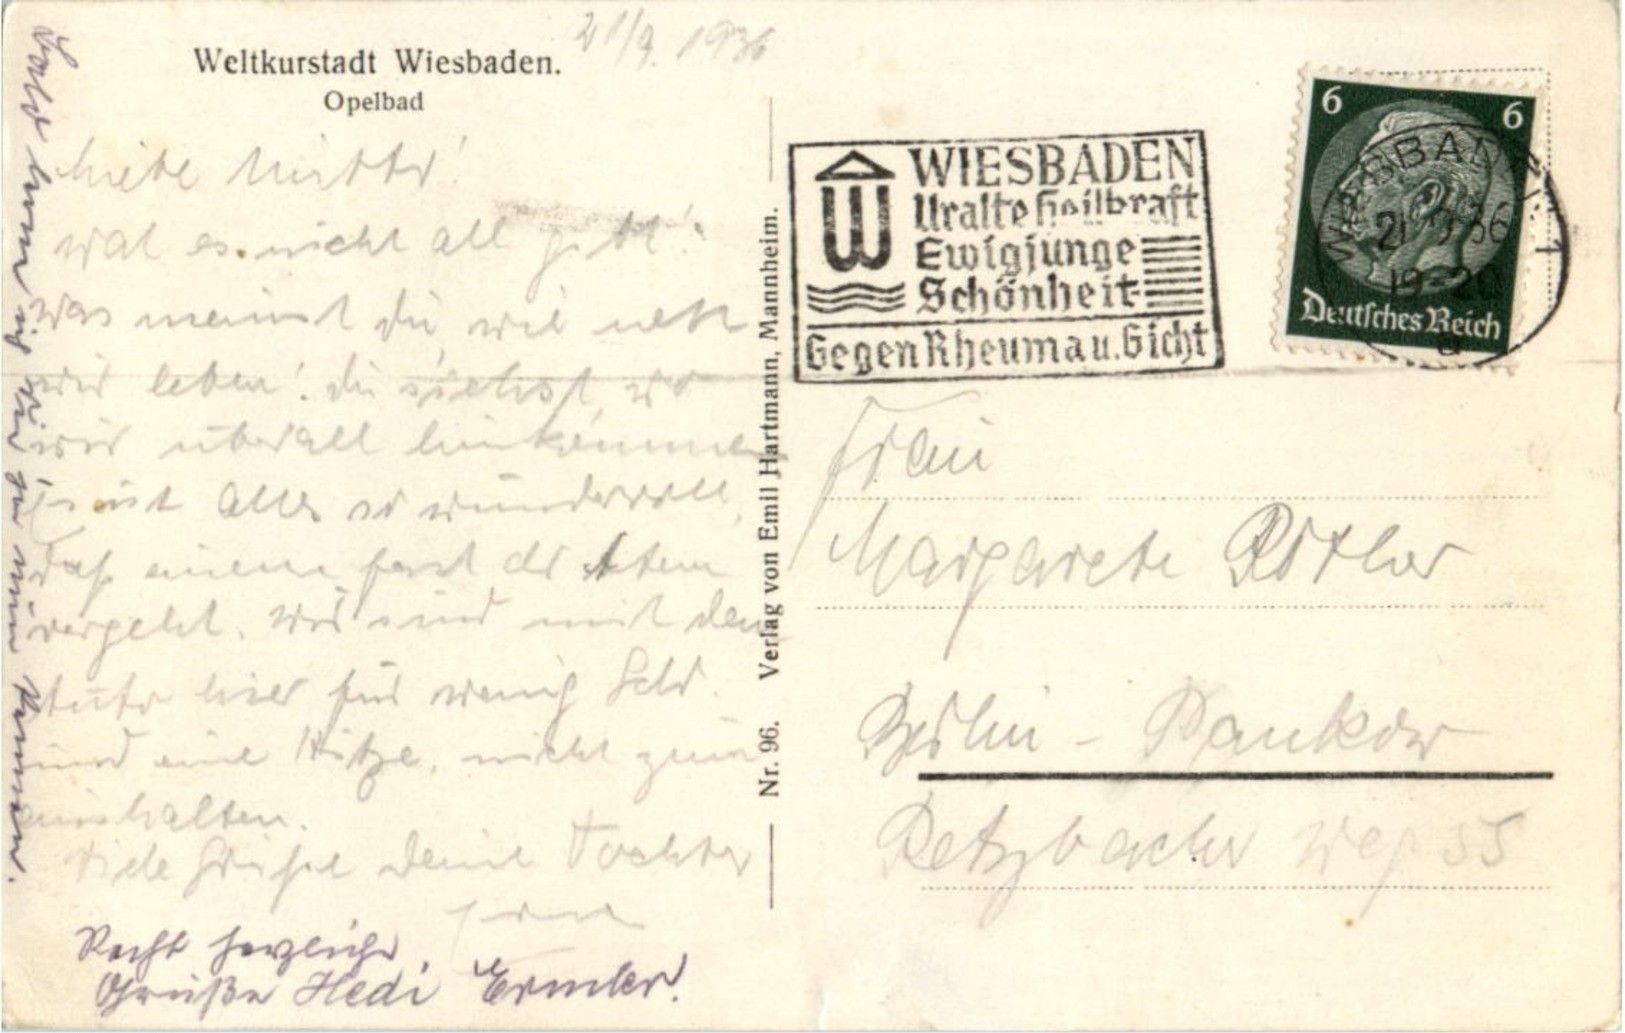 21/9. 1936
Weltkurstadt Wiesbaden.
Opelbad
Liebe Mutter!
wat es nicht all gibt!
was meinst du wie nett
wir leben! du siehst, wo
wir überall hinkommen
Es ist alles so wundervoll,
daß einem fast der Atem
vergeht. wir sind mit dem
Auto hier für wenig Geld.
und eine Hitze, nicht zum
aushalten.
Viele Grüße deine Tochter
Recht herzliche
Grüße Hedi Ermler.
zu mir kommen.
Nr. 96. Verlag von Emil Hartmann, Mannheim.
WIESBADEN
Uralte Heilkraft
Ewigjunge
Schönheit
Gegen Rheuma u. Gicht
6 6
Deutsches Reich
WIESBADEN 1
19-20
Frau
Margarete
Berlin - Pankow
Retzbacher Weg 55